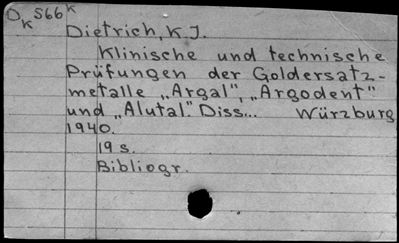 D K S66 K
Dietrich, K. J.
Klinische und technische
Prüfungen der Goldersatz-
metalle „Argal", „Argodent"
und „Alutal". Diss... Würzburg
1940.
19 s.
Bibliogr.